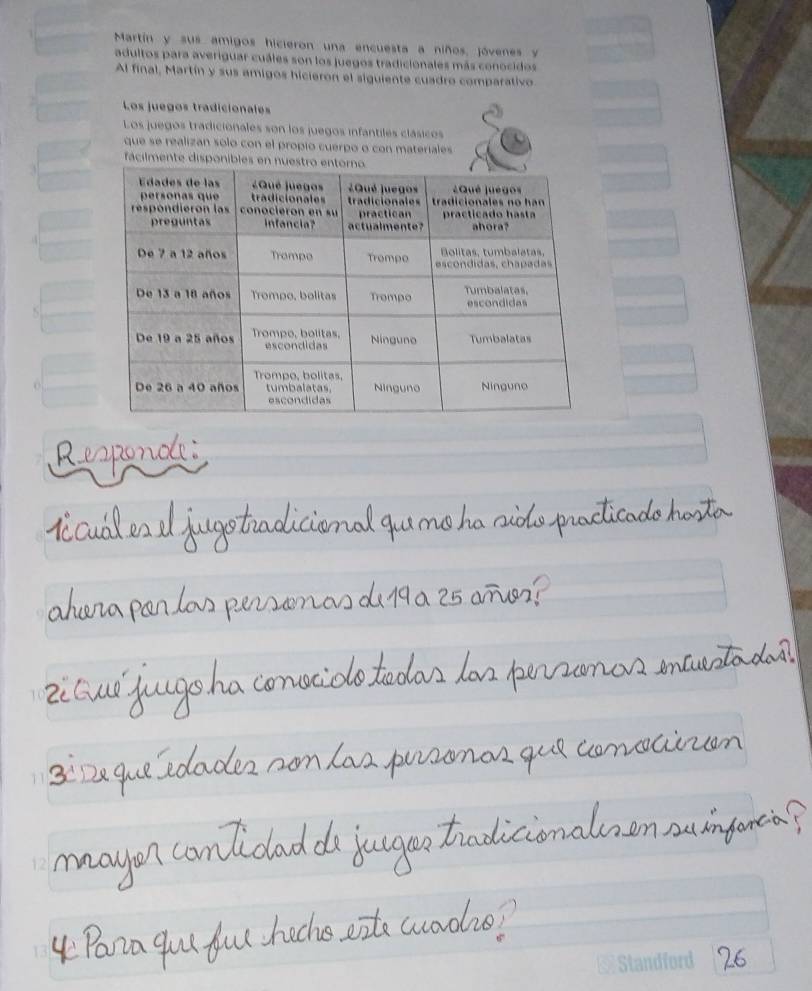 Martín y sus amigos hicieron una encuesta a niños, jóvenes y
adultos para averiguar cuáles son los juegos tradicionales más conocidos
Al final, Martín y sus amigos hicieron el siguiente cuadro comparativo
Los juegos tradicionales
Los juegos tradicionales son los juegos infantiles clásicos
que se realizan solo con el propio cuerpo o con materiales
fácilmente disponibles en nuestro entorno.
Edades de las personas que respondieron las preguntas
¿Qué juegos tradicionales conocieron en su infancia?
¿Qué juegos tradicionales practican actualmente?
¿Qué juegos tradicionales no han practicado hasta ahora?
De 7 a 12 años
Trompo
Trompo
Bolitas, tumbalatas, escondidas, chapadas
De 13 a 18 años
Trompo, bolitas
Trompo
Tumbalatas, escondidas
De 19 a 25 años
Trompo, bolitas, escondidas
Ninguno
Tumbalatas
De 26 a 40 años
Trompo, bolitas, tumbalatas, escondidas
Ninguno
Ninguno
Responde:
1¿cuál es el jugo tradicional que no ha sido practicado hasta
ahora por las personas de 19 a 25 años?
2¿Qué jugo ha conocido todas las personas encuestadas?
3¿De que edades son las personas que conocieron
mayor cantidad de juegos tradicionales en su infancia?
4¿Para que fue hecho este cuadro?
Standford 26